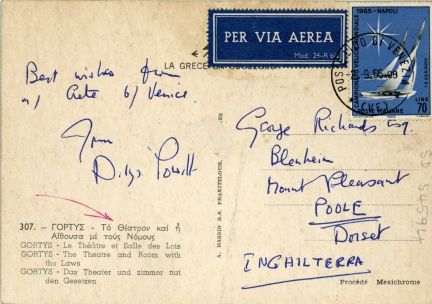 PER VIA AEREA
Mod. 24-R
1965-NAPOLI
LIRE
70
POSTE ITALIANE
LA GRECE
Best wishes from
Crete & Venice.
from
Dilys Powell
George Richards Esq.
Blenheim
Mount Pleasant
POOLE
Dorset
INGHILTERRA
307. — ΓΟΡΤΥΣ - Τό Θέατρον καί ἡ
Αἴθουσα μέ τούς Νόμους
GORTYS - Le Théâtre et Salle des Lois
GORTYS - The Theatre and Room with
the Laws
GORTYS - Das Theater und zimmer nut
den Gesetzen
A. HASSID S.A. PRAXITELOUS,
Procédé Mexichrome